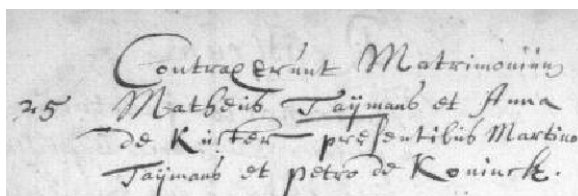 Contraxerunt Matrimonium
25 Matheus Taÿmans et Anna
de Kuster presentibus Martino
Taÿmans et petro de Koninck.